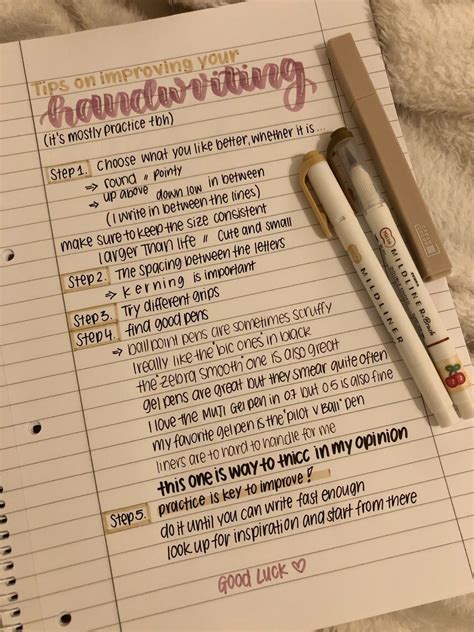 Tips on improving your
handwriting
(it's mostly practice tbh)
Step 1. Choose what you like better, whether it is...
→ round // pointy
→ up above down low in between
(I write in between the lines)
make sure to keep the size consistent
larger than life // cute and small
Step 2. The spacing between the letters
→ kerning is important
Step 3. Try different grips
Step 4. find good pens
→ ballpoint pens are sometimes scruffy
I really like the "bic" ones in black
the "zebra smooth" one is also great
gel pens are great but they smear quite often
I love the MUJI Gel pen in 07 but 05 is also fine
my favorite gel pen is the "pilot v Ball" pen
liners are to hard to handle for me
this one is way to thicc in my opinion
Step 5. practice is key to improve!
do it until you can write fast enough
look up for inspiration and start from there
GOOD LUCK ♡
MILDLINER
MILDLINER Brush